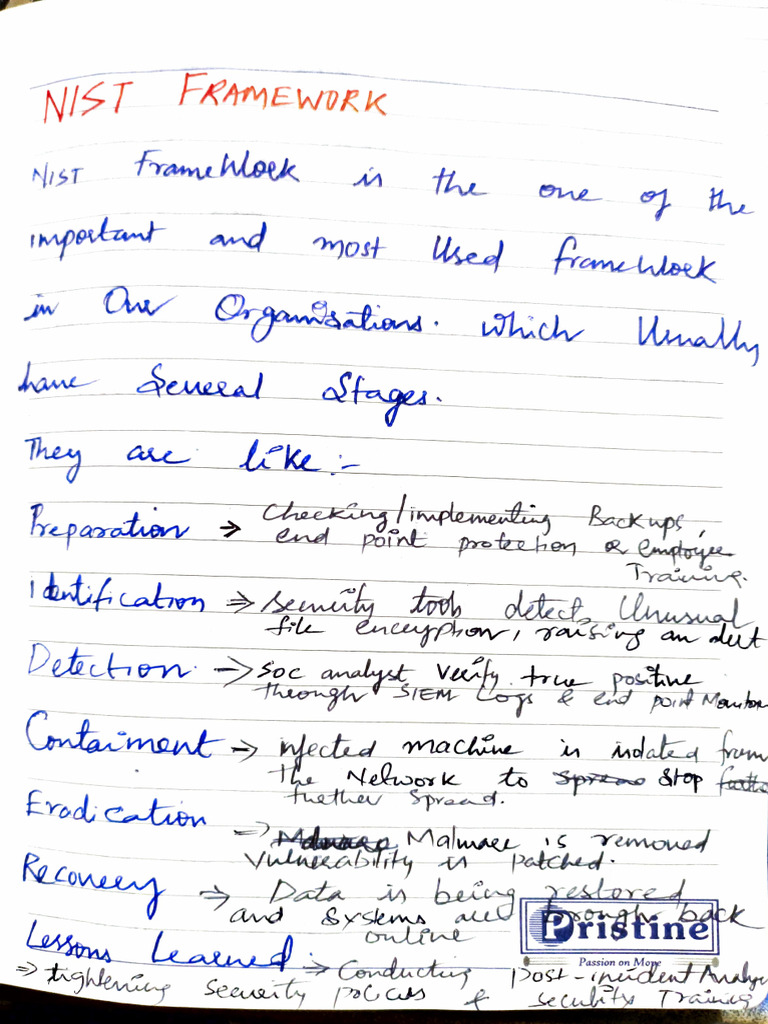 NIST FRAMEWORK
NIST Framework is the one of the
important and most Used framework
in Our Organisations. which Usually
have Several Stages.
They are like:-
Preparation → Checking/implementing Backups,
end point protection or employee
Training.
Identification ⇒ Security tools detect Unusual
file encryption, raising an alert
Detection → SOC analyst Verify true positive
through SIEM Logs & end point Monitor
Containment → infected machine is isolated from
the Network to Stop
further Spread.
Eradication → Malware is removed
Vulnerability is patched.
Recovery → Data is being restored
and Systems are brought back
online
Lessons Learned ⇒ Conducting post-incident Analy
⇒ tightening Security policies & security Training
Pristine
Passion on More